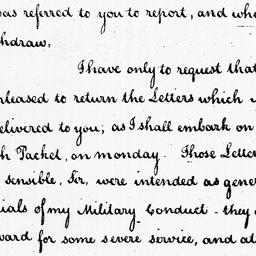 was referred to you to report, and who
thdraw.
I have only to request that
pleased to return the Letters which
delivered to you; as I shall embark on
h Packet, on monday. Those Letter
sensible, Sir, were intended as gener
ials of my Military Conduct - they
ward for some severe service, and at